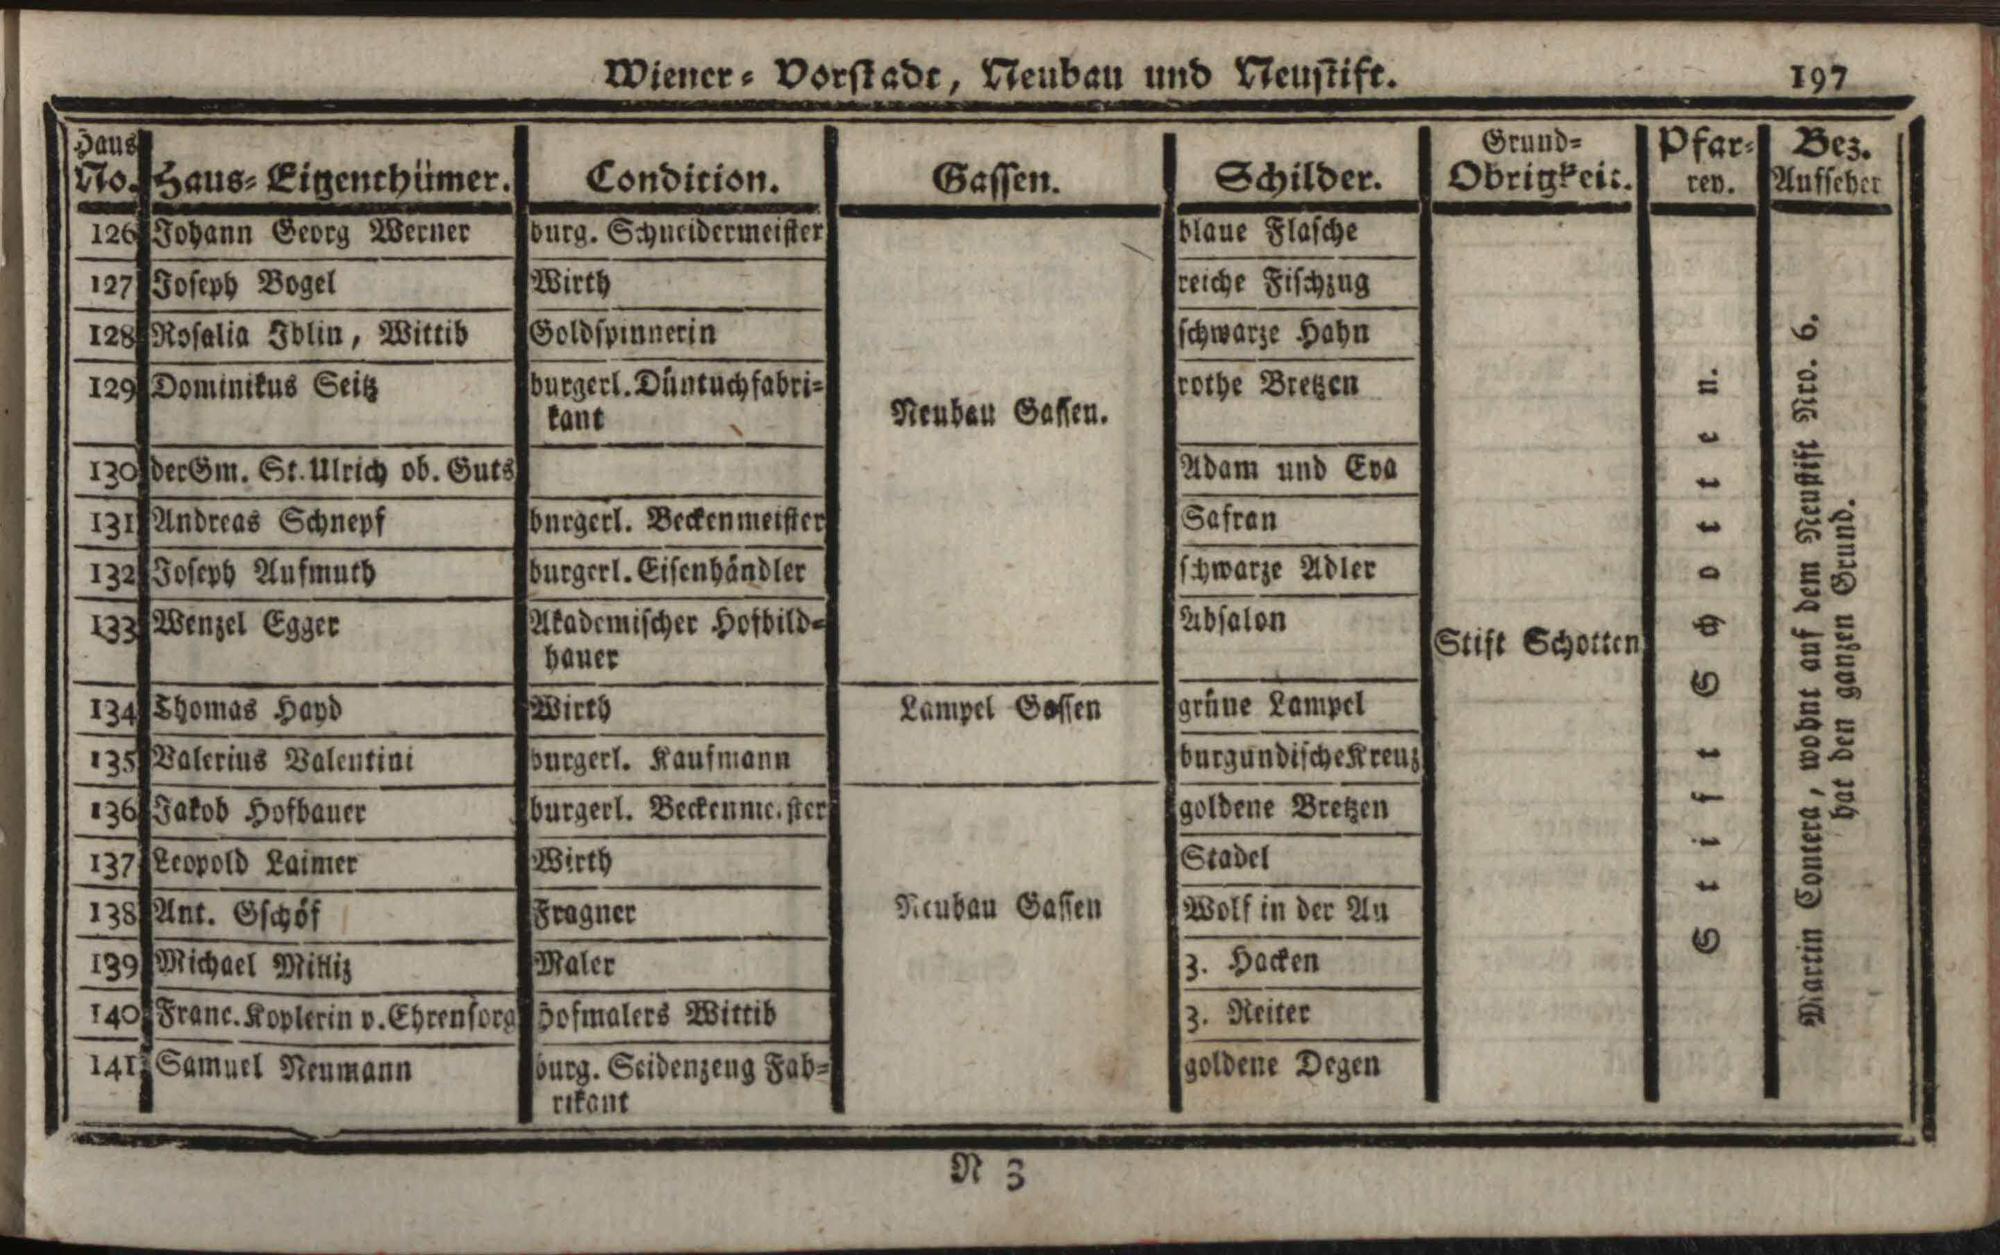 Wiener- Vorstadt, Neubau und Neustift. 197
Haus No. Haus-Eigenthümer. Condition. Gassen. Schilder. Grund-Obrigkeit. Pfar-rey. Bez. Aufseher
126 Johann Georg Werner burg. Schneidermeister blaue Flasche
127 Joseph Vogel Wirth reiche Fischzug
128 Rosalia Iblin, Wittib Goldspinnerin schwarze Hahn
129 Dominikus Seitz burgerl. Düntuchfabri- rothe Bretzen
kant
Neubau Gassen.
130 der Gm. St. Ulrich ob. Guts Adam und Eva
131 Andreas Schnepf burgerl. Beckenmeister Safran
132 Joseph Aufmuth burgerl. Eisenhändler schwarze Adler
133 Wenzel Egger Akademischer Hofbild- Absalon
hauer
Stift Schotten
134 Thomas Hayd Wirth Lampel Gassen grüne Lampel
135 Valerius Valentini burgerl. Kaufmann burgundische Kreuz
136 Jakob Hofbauer burgerl. Beckenmeister goldene Bretzen
137 Leopold Laimer Wirth Stadel
138 Ant. Gschöf Fragner Neubau Gassen Wolf in der Au
139 Michael Maler 3. Hacken
140 Franc. Koplerin v. Ehrensorg Hofmalers Wittib 3. Reiter
141 Samuel Neumann burg. Seidenzeug Fab- goldene Degen
rikant
Stift Schotten.
Martin Contera, wohnt auf dem Neustift Nro. 6.
hat den ganzen Grund.
N 3